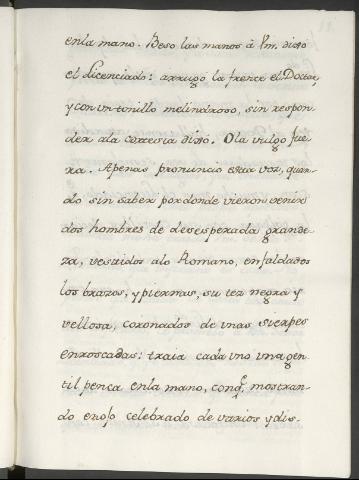 enla mano. Beso las manos â Vm. dixo
el Licenciado: arrugó la frente el Doctor,
y con un tonillo melindroso, sin respon-
der ala cortesia dixó. Ola vulgo fue-
ra. Apenas pronuncio estar voz, quan-
do sin saber pordonde vieron venir
dos hombres de desesperada grande-
za, vestidos alo Romano, enfaldados
los brazos, y piernas, su tez negra y
vellosa, coronados de unas sierpes
enroscadas: traia cada uno una gen-
til penca enla mano, conq.e mostran-
do celebrado de varios y dis-